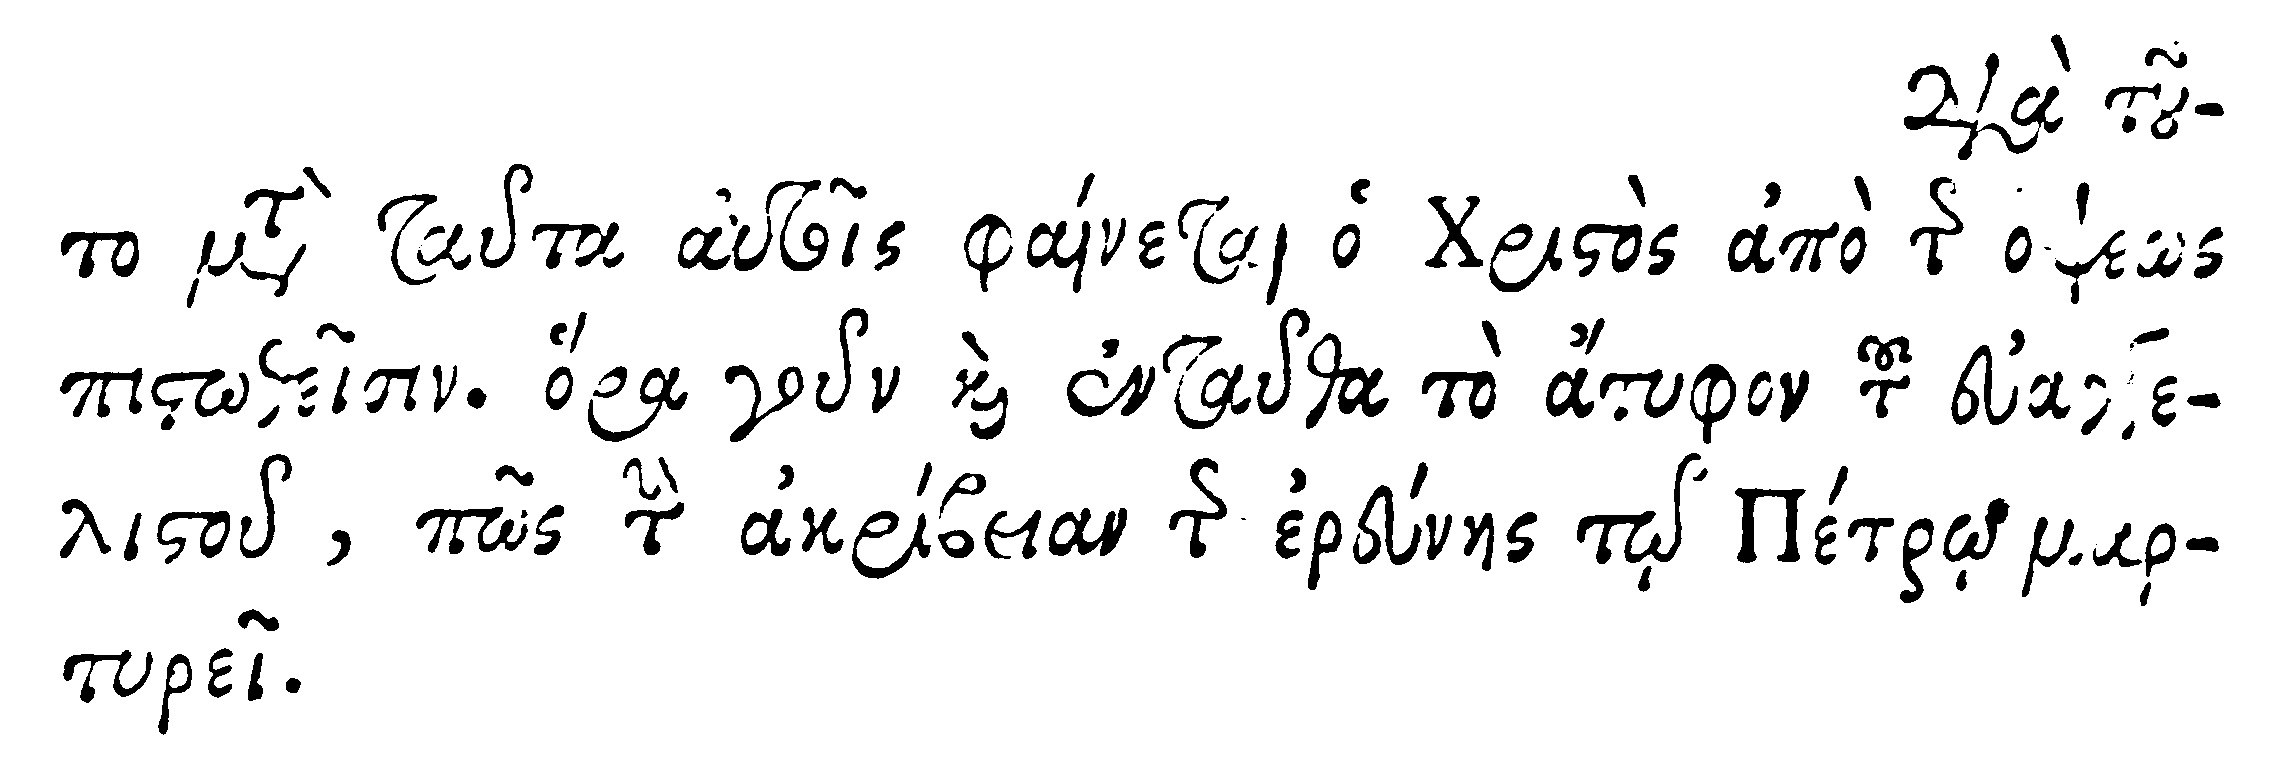 διὰ τοῦ-
το μετὰ ταῦτα αὐτοῖς φαίνεται ὁ Χριστὸς ἀπὸ τῆς ὄψεως
πιστωθεῖσιν. ὅρα γοῦν καὶ ἐνταῦθα τὸ ἄτυφον τοῦ εὐαγγε-
λιστοῦ, πῶς τὴν ἀκρίβειαν τῆς ἐρεύνης τῷ Πέτρῳ μαρ-
τυρεῖ.